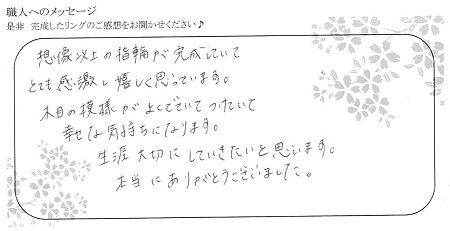 職人へのメッセージ
是非 完成したリングのご感想をお聞かせください♪
想像以上の指輪が完成していて
とても感激し嬉しく思っています。
木目の模様がよくでていてつけていて
幸せな気持ちになります。
生涯大切にしていきたいと思います。
本当にありがとうございました。